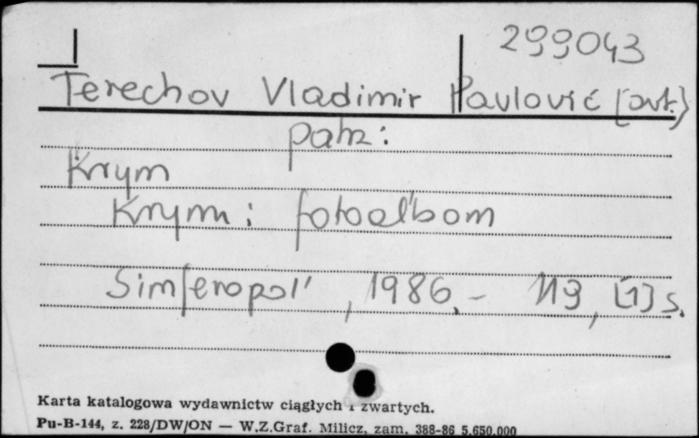 299043
Terechov Vladimir Pavlović [aut.]
patrz:
Krym
Krym : fotoal'bom
Simferopol', 1986. - 119, [1] s.
Karta katalogowa wydawnictw ciągłych i zwartych.
Pu-B-144, z. 228/DW/ON — W.Z.Graf. Milicz, zam. 388-86 5.650.000